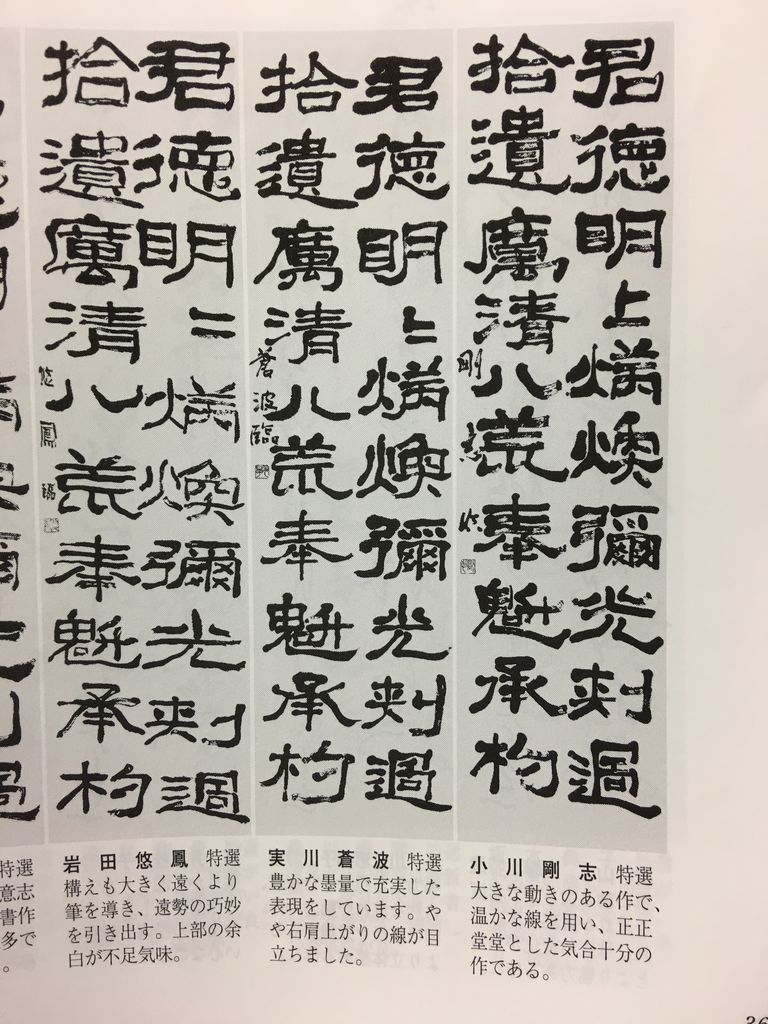 君德明〻炳煥彌光刺過
拾遺厲清八荒奉魁承杓
剛志臨
小川剛志 特選
大きな動きのある作で、
温かな線を用い、正正
堂堂とした気合十分の
作である。
君德明〻炳煥彌光刺過
拾遺厲清八荒奉魁承杓
蒼波臨
実川蒼波 特選
豊かな墨量で充実した
表現をしています。や
や右肩上がりの線が目
立ちました。
君德明〻炳煥彌光刺過
拾遺厲清八荒奉魁承杓
悠鳳臨
岩田悠鳳 特選
構えも大きく遠くより
筆を導き、遠勢の巧妙
を引き出す。上部の余
白が不足気味。
特選
意志
書作
多で
。